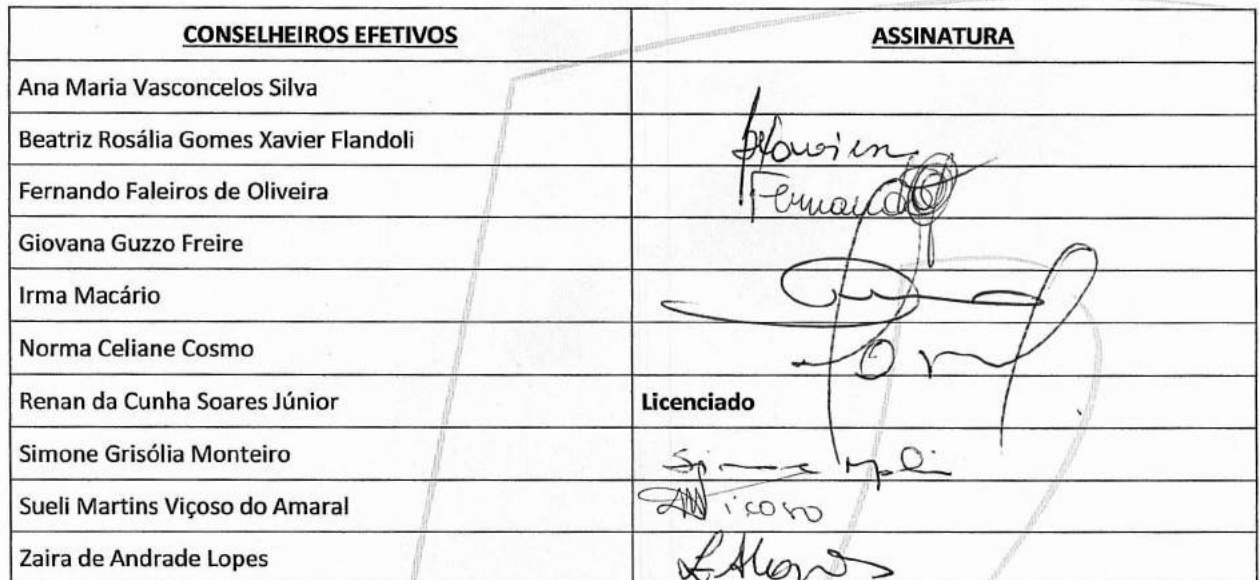 CONSELHEIROS EFETIVOS ASSINATURA
Ana Maria Vasconcelos Silva
Beatriz Rosália Gomes Xavier Flandoli
Fernando Faleiros de Oliveira Fernando
Giovana Guzzo Freire
Irma Macário
Norma Celiane Cosmo
Renan da Cunha Soares Júnior Licenciado
Simone Grisólia Monteiro
Sueli Martins Viçoso do Amaral
Zaira de Andrade Lopes